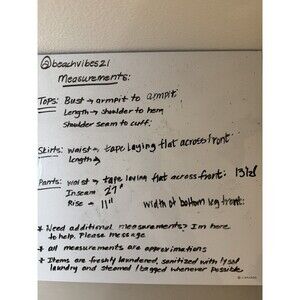 @beachvibes21
Measurements:
Tops: Bust → armpit to armpit:
Length → shoulder to hem
Shoulder seam to cuff:
Skirts: waist → tape laying flat across front:
length →
Pants: waist → tape laying flat across front:
Inseam 27"
Rise → 11"
width of bottom leg front:
* Need additional measurements? I'm here
to help. Please message
* all measurements are approximations
* Items are freshly laundered, sanitized with lysol
laundry and steamed / bagged whenever possible